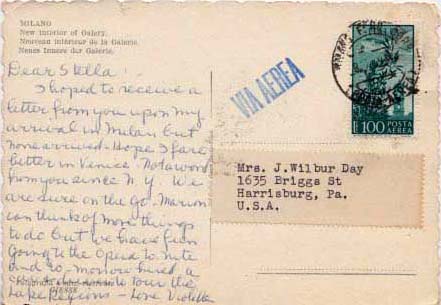 MILANO
New interior of Galery.
Nouveau intérieur de la Galerie.
Neues Innere der Galerie.
Dear Stella:
I hoped to receive a
letter from you upon my
arrival in Milan but
none arrived - Hope I fare
better in Venice. Not a word
from you since N Y We
are sure on the Go. Marion
can think of more things
to do but we have fun
Going to the Opera to nite
and to-morrow hired a
to tour the
Lake Regions - Love Violetta
VIA AEREA
L. 100 POSTA
AEREA
Mrs. J.Wilbur Day
1635 Briggs St
Harrisburg, Pa.
U.S.A.